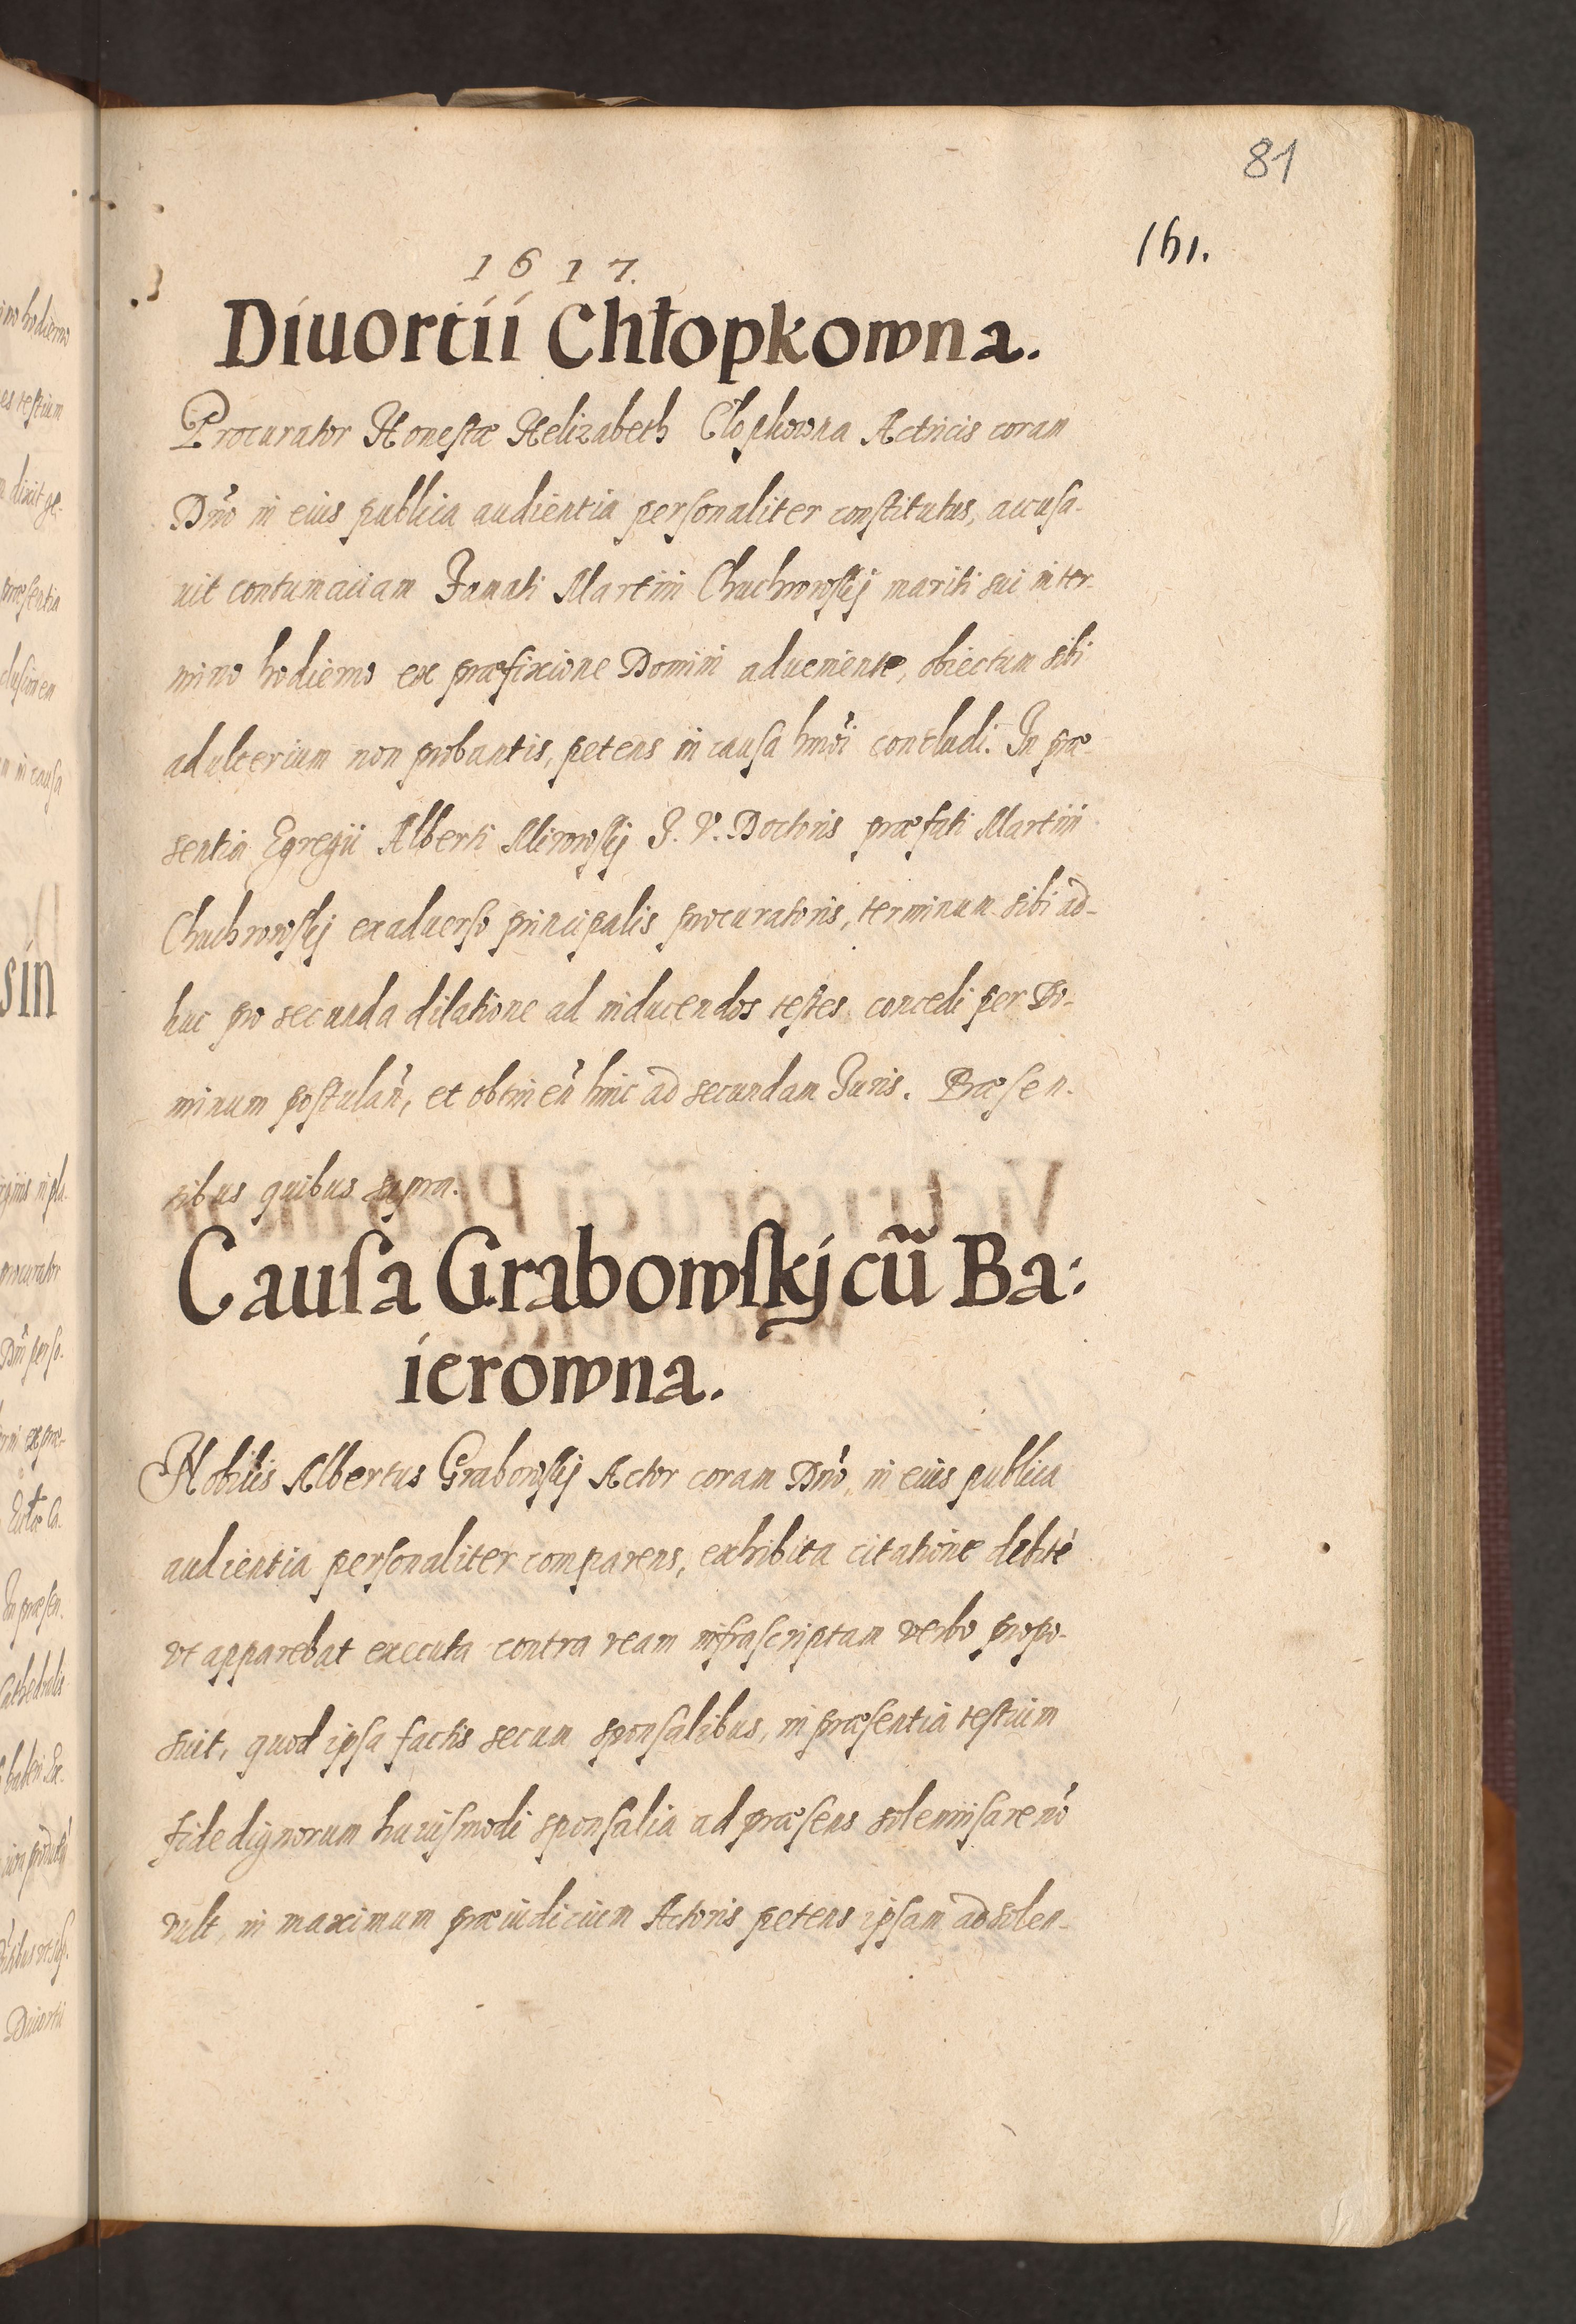 81
161.
1617.
Diuortii Chłopkowna.
Procurator Honestæ Helizabeth Clopkowna Actricis coram
Dnō in eius publica audientia personaliter constitutus, accusa-
uit contumaciam Famati Martini Chuchrowskij mariti sui in ter-
mino hodierno ex præfixione Domini adueniente, obiectum sibi
adulterium non probantis, petens in causa hmōi concludi. In præ-
sentia Egregii Alberti Mirowskij I. V. Doctoris præfati Martini
Chuchrowskij ex aduerso principalis procuratoris, terminum sibi ad-
huc pro secunda dilatione ad inducendos testes concedi per Do-
minum postulan̄, et obtinen̄ hinc ad secundam Iuris. Præsen-
tibus quibus supra.
Causa Grabowskij cū Ba:
ierowna.
Nobilis Albertus Grabowskij Actor coram Dnō, in eius publica
audientia personaliter comparens, exhibita citatione debitè
vt apparebat executa contra ream infrascriptam verbo propo-
suit, quod ipsa factis secum sponsalibus, in præsentia testium
fide dignorum huiusmodi sponsalia ad præsens solemnisare nō
vult, in maximum præiudicium Actoris petens ipsam ad solen-